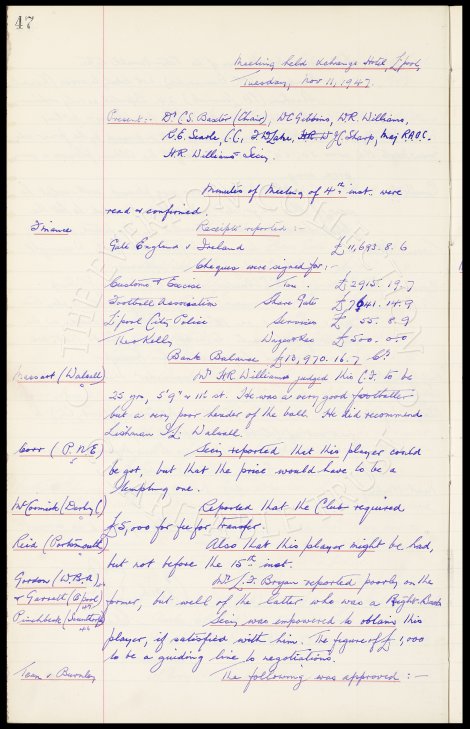 47
Meeting held Xchange Hotel, L'pool,
Tuesday, Nov 11, 1947.
Present:- Dr. C.S. Baxter (Chair), W.C. Gibbins, W.R. Williams,
R.E. Searle, C.C., T.W. Lake, H.R. W J.C. Sharp, Maj R.A.O.C.
H.R. Williams Secy.
Minutes of Meeting of 4th inst. were
read & confirmed.
Finance Receipts reported :-
Gate England v Ireland £11,693. 8. 6
Cheques were signed for :-
Customs & Excise Tax. £2915. 19. 7
Football Association Share Gate £7641. 14. 9
L'pool City Police Services £ 55. 8. 9
Theo Kelly Wages &c £500. 0. 0
Bank Balance £18,970. 16. 7 Cr
Massart (Walsall) Mr. W.R. Williams judged this C.F. to be
25 yrs, 5' 9" & 11½ st. He was a very good footballer
but a very poor header of the ball. He did recommend
Lishman I.L. Walsall.
Corr (P.N.E) Secy reported that this player could
be got, but that the price would have to be a
tempting one.
McCormick (Derby C) Reported that the Club required
£5,000 for fee for transfer.
Reid (Portsmouth) Also that this player might be had,
but not before the 15th inst.
Gordon (W.B.A) Mr. J. Bryan reported poorly on the
& Garrett (B'pool) former, but well of the latter who was a Right-Back
Pinchbeck (Scunthorpe) Secy was empowered to obtain this
player, if satisfied with him. The figure of £1,000
to be a guiding line to negotiations.
Team v Burnley The following was approved :-
THE EVERTON COLLECTION
CHARITABLE TRUST